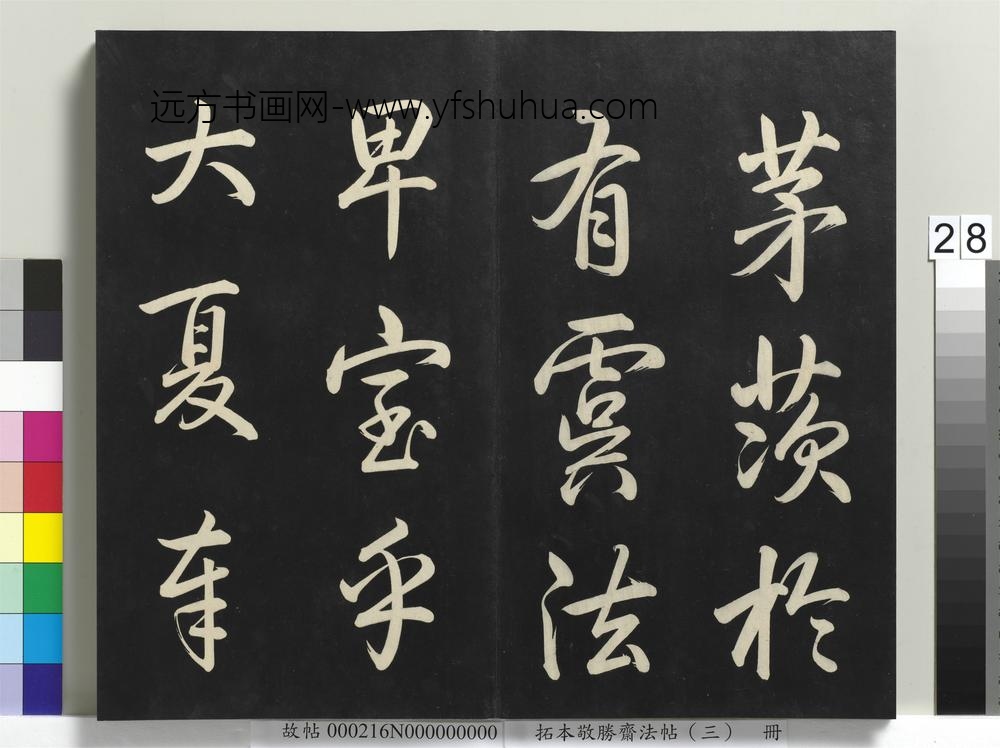 茅茨於
有虞法
卑室乎
大夏奉
远方书画网-www.yfshuhua.com
28
故帖 000216N000000000 拓本敬勝齋法帖（三） 冊